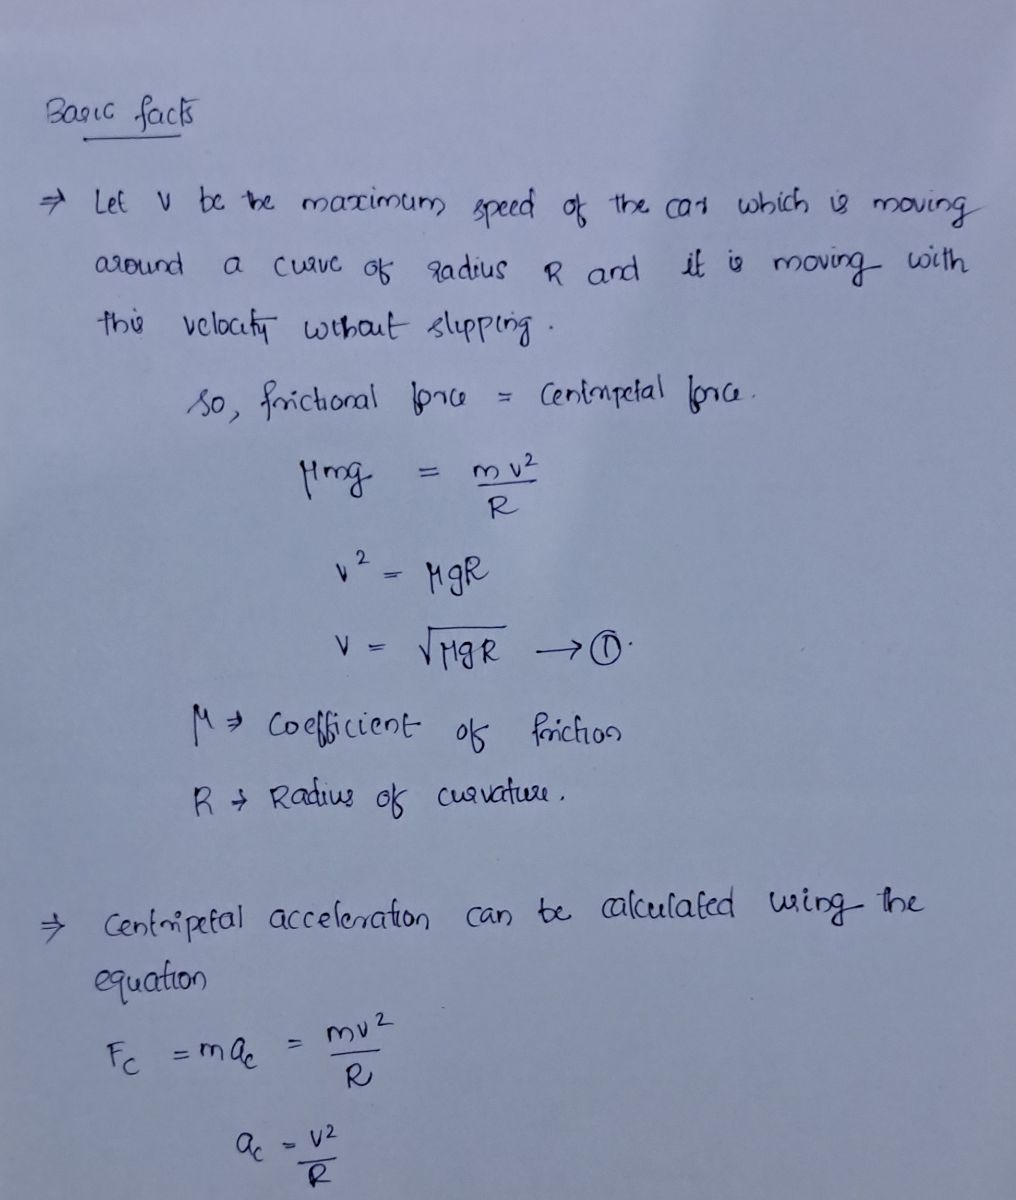 Basic facts
⇒ Let v be the maximum speed of the car which is moving
around a curve of radius R and it is moving with
this velocity without slipping.
So, frictional force = Centripetal force.
μmg = mv²/R
v² = μgR
v = √μgR → ①.
μ ⇒ Coefficient of friction
R → Radius of curvature.
⇒ Centripetal acceleration can be calculated using the
equation
Fc = mac = mv²/R
ac = v²/R